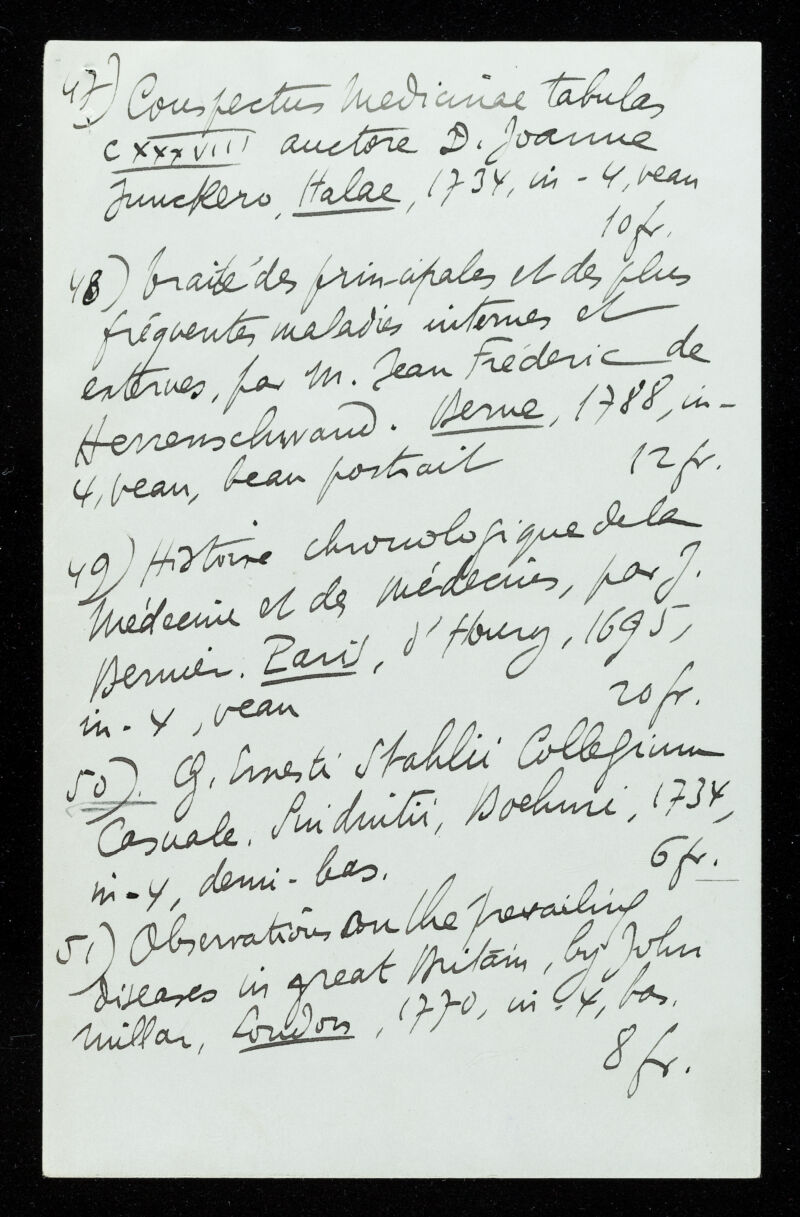 47) Conspectus Medicinae tabulas
CXXXVIII auctore D. Joanne
Junckero, Halae, 1734, in-4, veau
10 fr.
48) traité des principales et des plus
fréquentes maladies internes et
externes, par M. Jean Fréderic de
Herrenschwand. Berne, 1788, in-
4, veau, beau portrait 12 fr.
49) Histoire chronologique de la
Médecine et des médecins, par J.
Bernier. Paris, d'Houry, 1695,
in-4, veau 20 fr.
50). G. Ernesti Stahlii Collegium
Casuale. Suidnitii, Boehmi, 1734,
in-4, demi-bas. 6 fr.
51) Observations on the prevailing
diseases in great Britain, by John
Millar, London, 1770, in-4, bas.
8 fr.